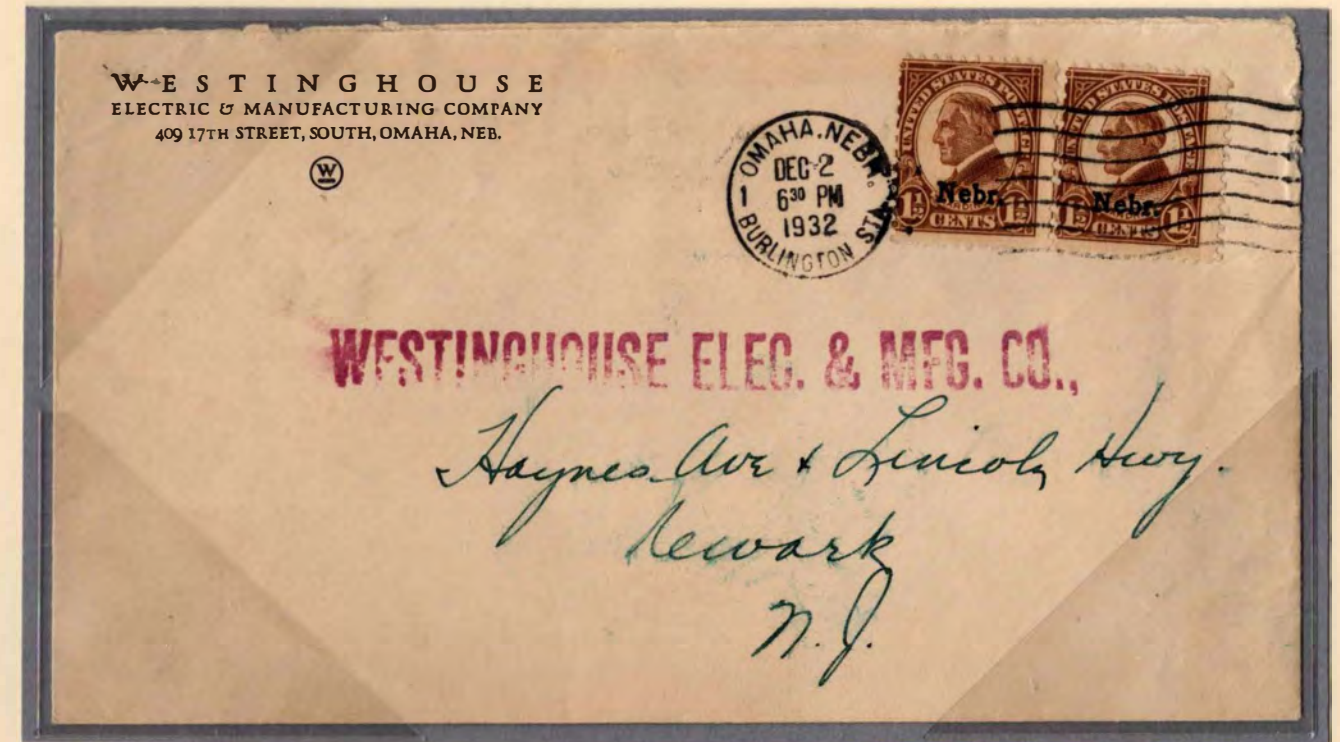 WESTINGHOUSE
ELECTRIC & MANUFACTURING COMPANY
409 17TH STREET, SOUTH, OMAHA, NEB.
W
OMAHA, NEBR.
DEC 2
1 6 30 PM
1932
BURLINGTON STA.
UNITED STATES POSTAGE
Nebr.
1½ CENTS 1½
UNITED STATES POSTAGE
Nebr.
1½ CENTS 1½
WESTINGHOUSE ELEC. & MFG. CO.,
Haynes Ave & Lincoln Hwy.
Newark
N. J.